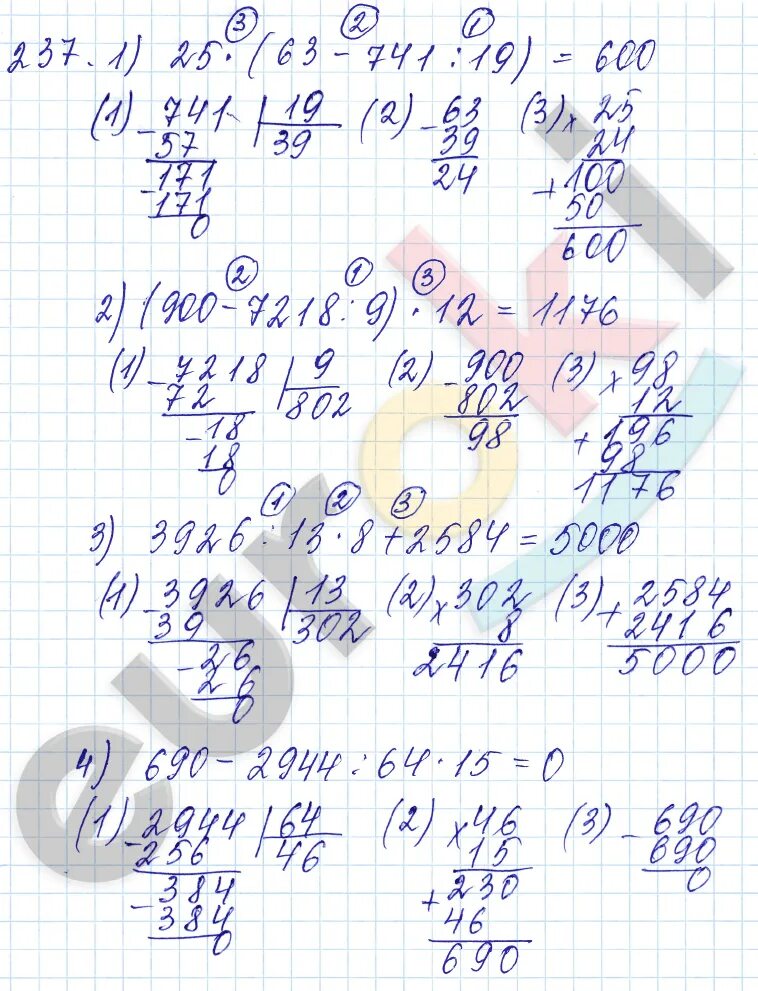 237. 1) 25 · (63 - 741 : 19) = 600
③ ② ①
(1) 741 | 19 (2) 63 (3) 25
- 57 | 39 - 39 × 24
171 24 + 100
- 171 50
0 600
② ① ③
2) (900 - 7218 : 9) · 12 = 1176
(1) 7218 | 9 (2) 900 (3) 98
- 72 | 802 - 802 × 12
- 18 98 + 196
18 98
0 1176
① ② ③
3) 3926 : 13 · 8 + 2584 = 5000
(1) 3926 | 13 (2) 302 (3) 2584
- 39 | 302 × 8 + 2416
- 26 2416 5000
26
0
4) 690 - 2944 : 64 · 15 = 0
(1) 2944 | 64 (2) 46 (3) 690
- 256 | 46 × 15 - 690
- 384 + 230 0
384 46
0 690
euroki